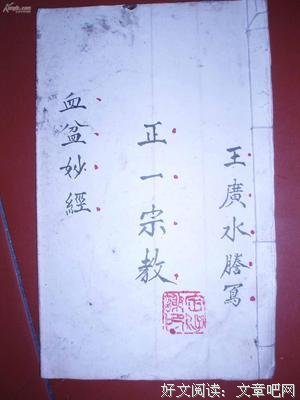 王廣水謄寫
正一宗教
血盆妙經
好文阅读：文章吧网